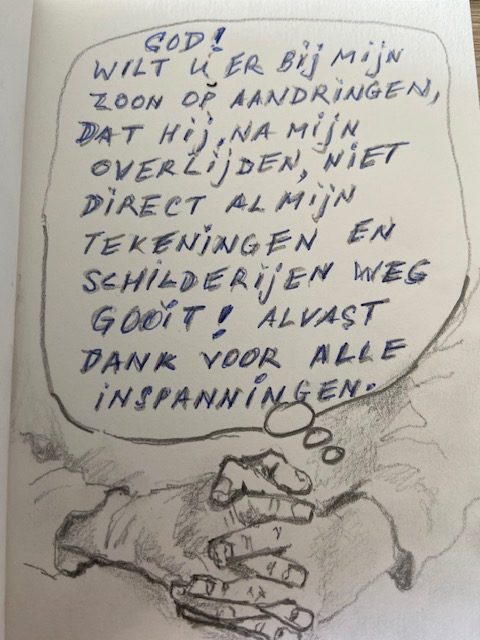 GOD!
WILT U ER BIJ MIJN
ZOON OP AANDRINGEN,
DAT HIJ, NA MIJN
OVERLIJDEN, NIET
DIRECT AL MIJN
TEKENINGEN EN
SCHILDERIJEN WEG
GOOIT! ALVAST
DANK VOOR ALLE
INSPANNINGEN.